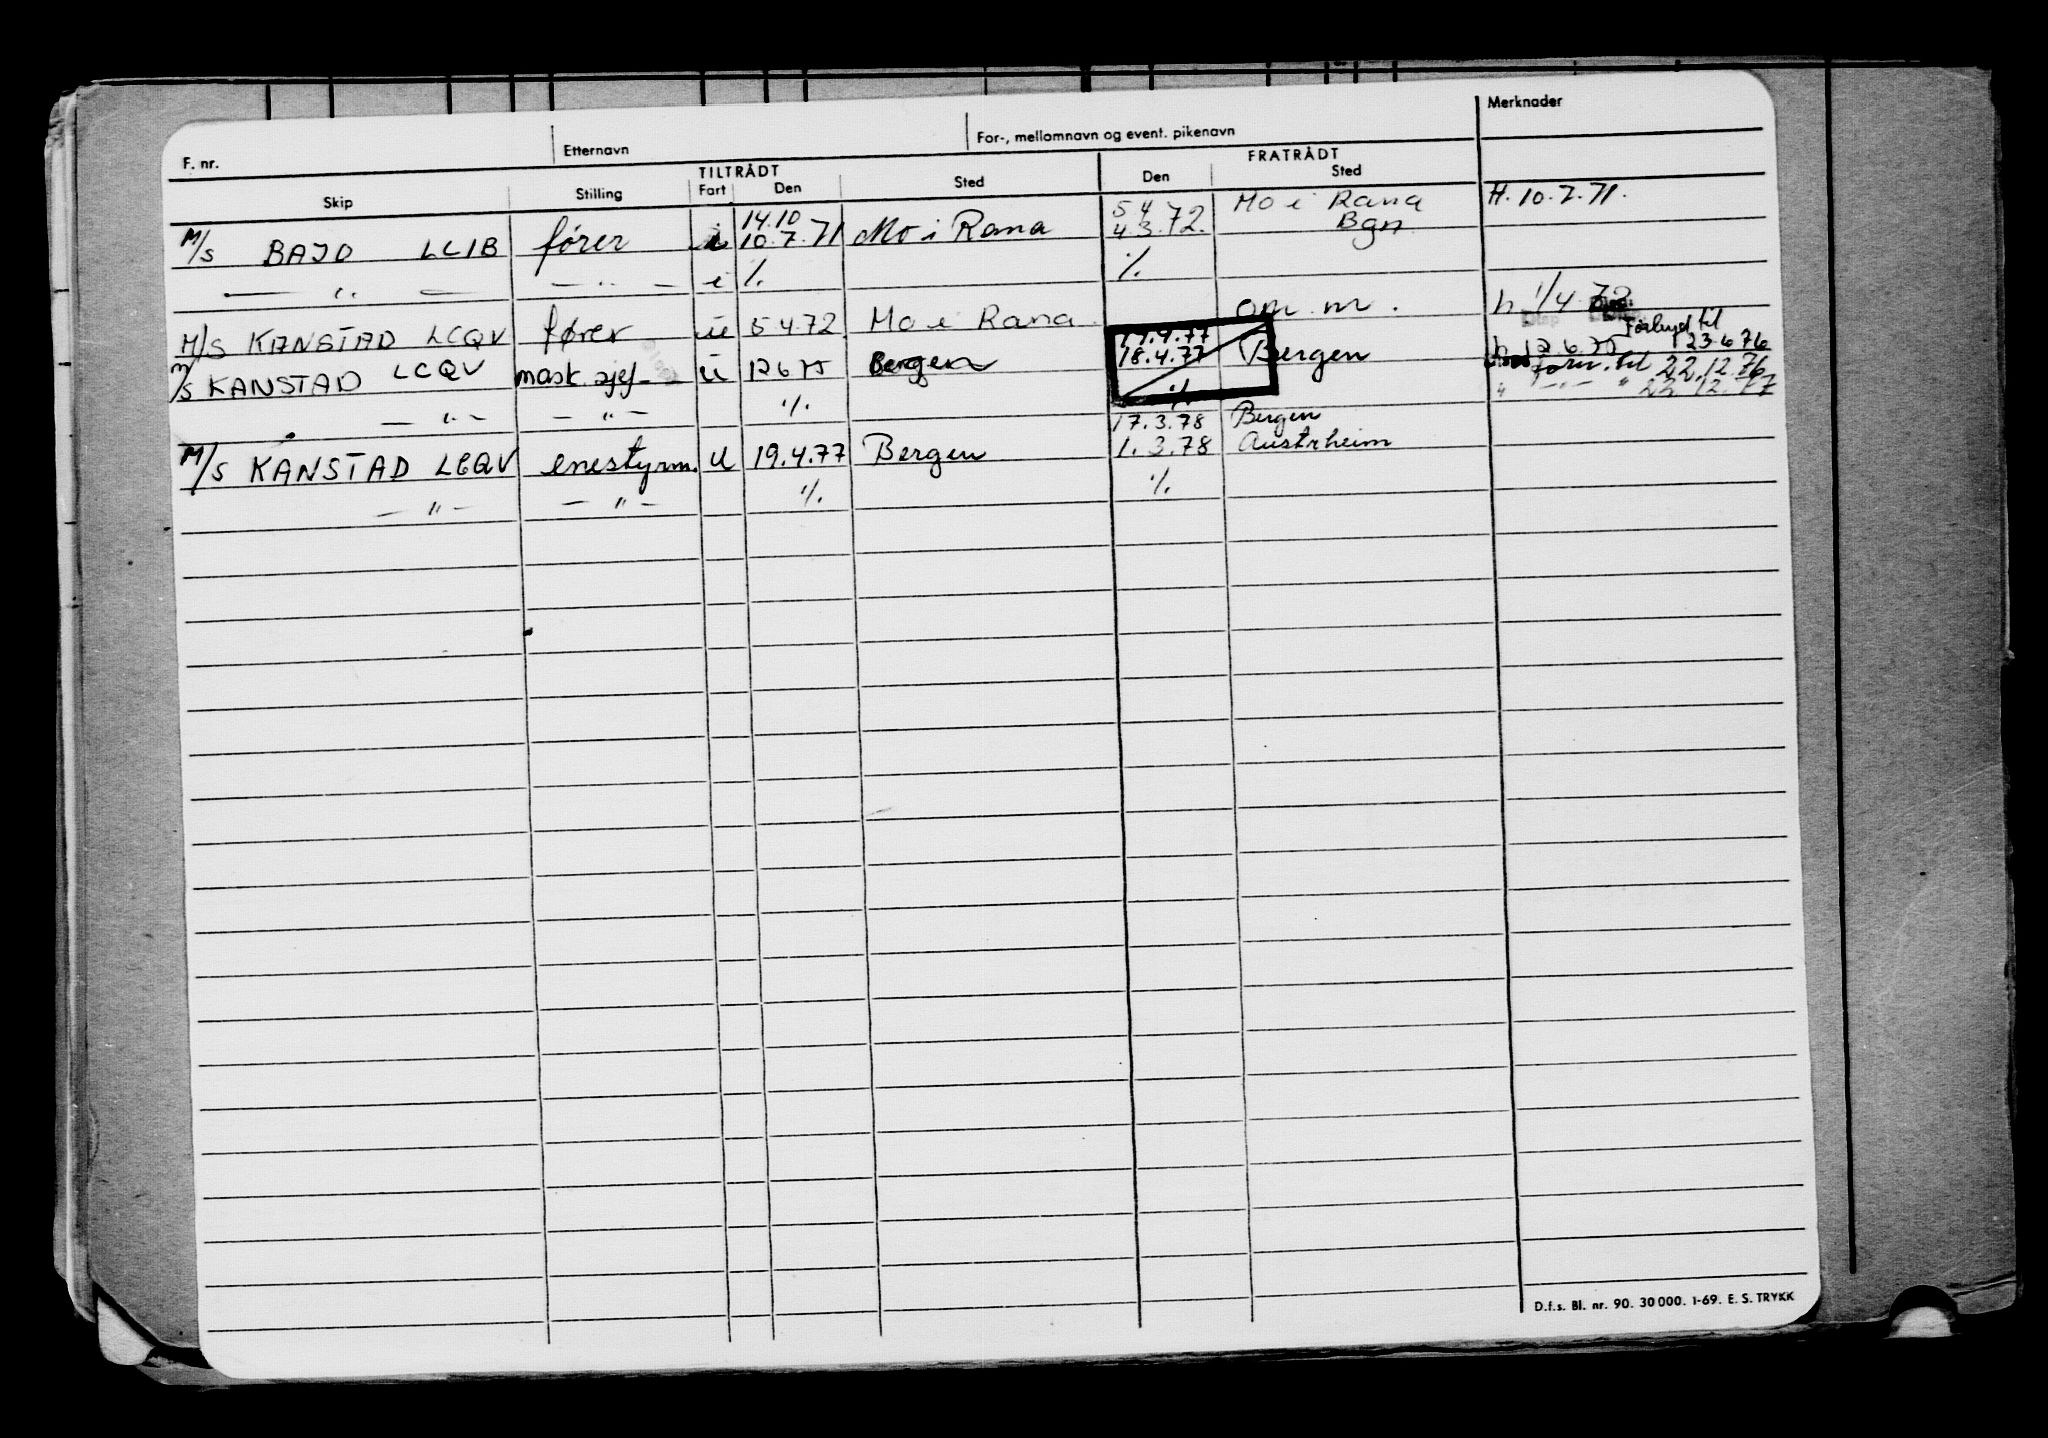 F. nr. Etternavn For-, mellomnavn og event. pikenavn Merknader
TILTRÅDT FRATRÅDT
Skip Stilling Fart Den Sted Den Sted
14.10 5 4 Mo i Rana H. 10.7.71.
M/S BAJO LCIB fører i 10.7.71 Mo i Rana 4 3.72. Bgn
— " — — " — i %. %.
M/S KANSTAD LCQV fører u 5 4 72 Mo i Rana om m. h 1/4 72
19.4.77 Forhyd til
M/S KANSTAD LCQV mask. sjef u 12 6 75 Bergen 18.4.77 Bergen h 12 6 75 23 6 76
forn. til 22.12.76
— " — — " — %. %. " — " — " 22 12.77
17.3.78 Bergen
M/S KANSTAD LCQV enestyrm. U 19.4.77 Bergen 1.3.78 Austrheim
— " — — " — %. %.
D.f.s. Bl. nr. 90. 30 000. 1-69. E. S. TRYKK